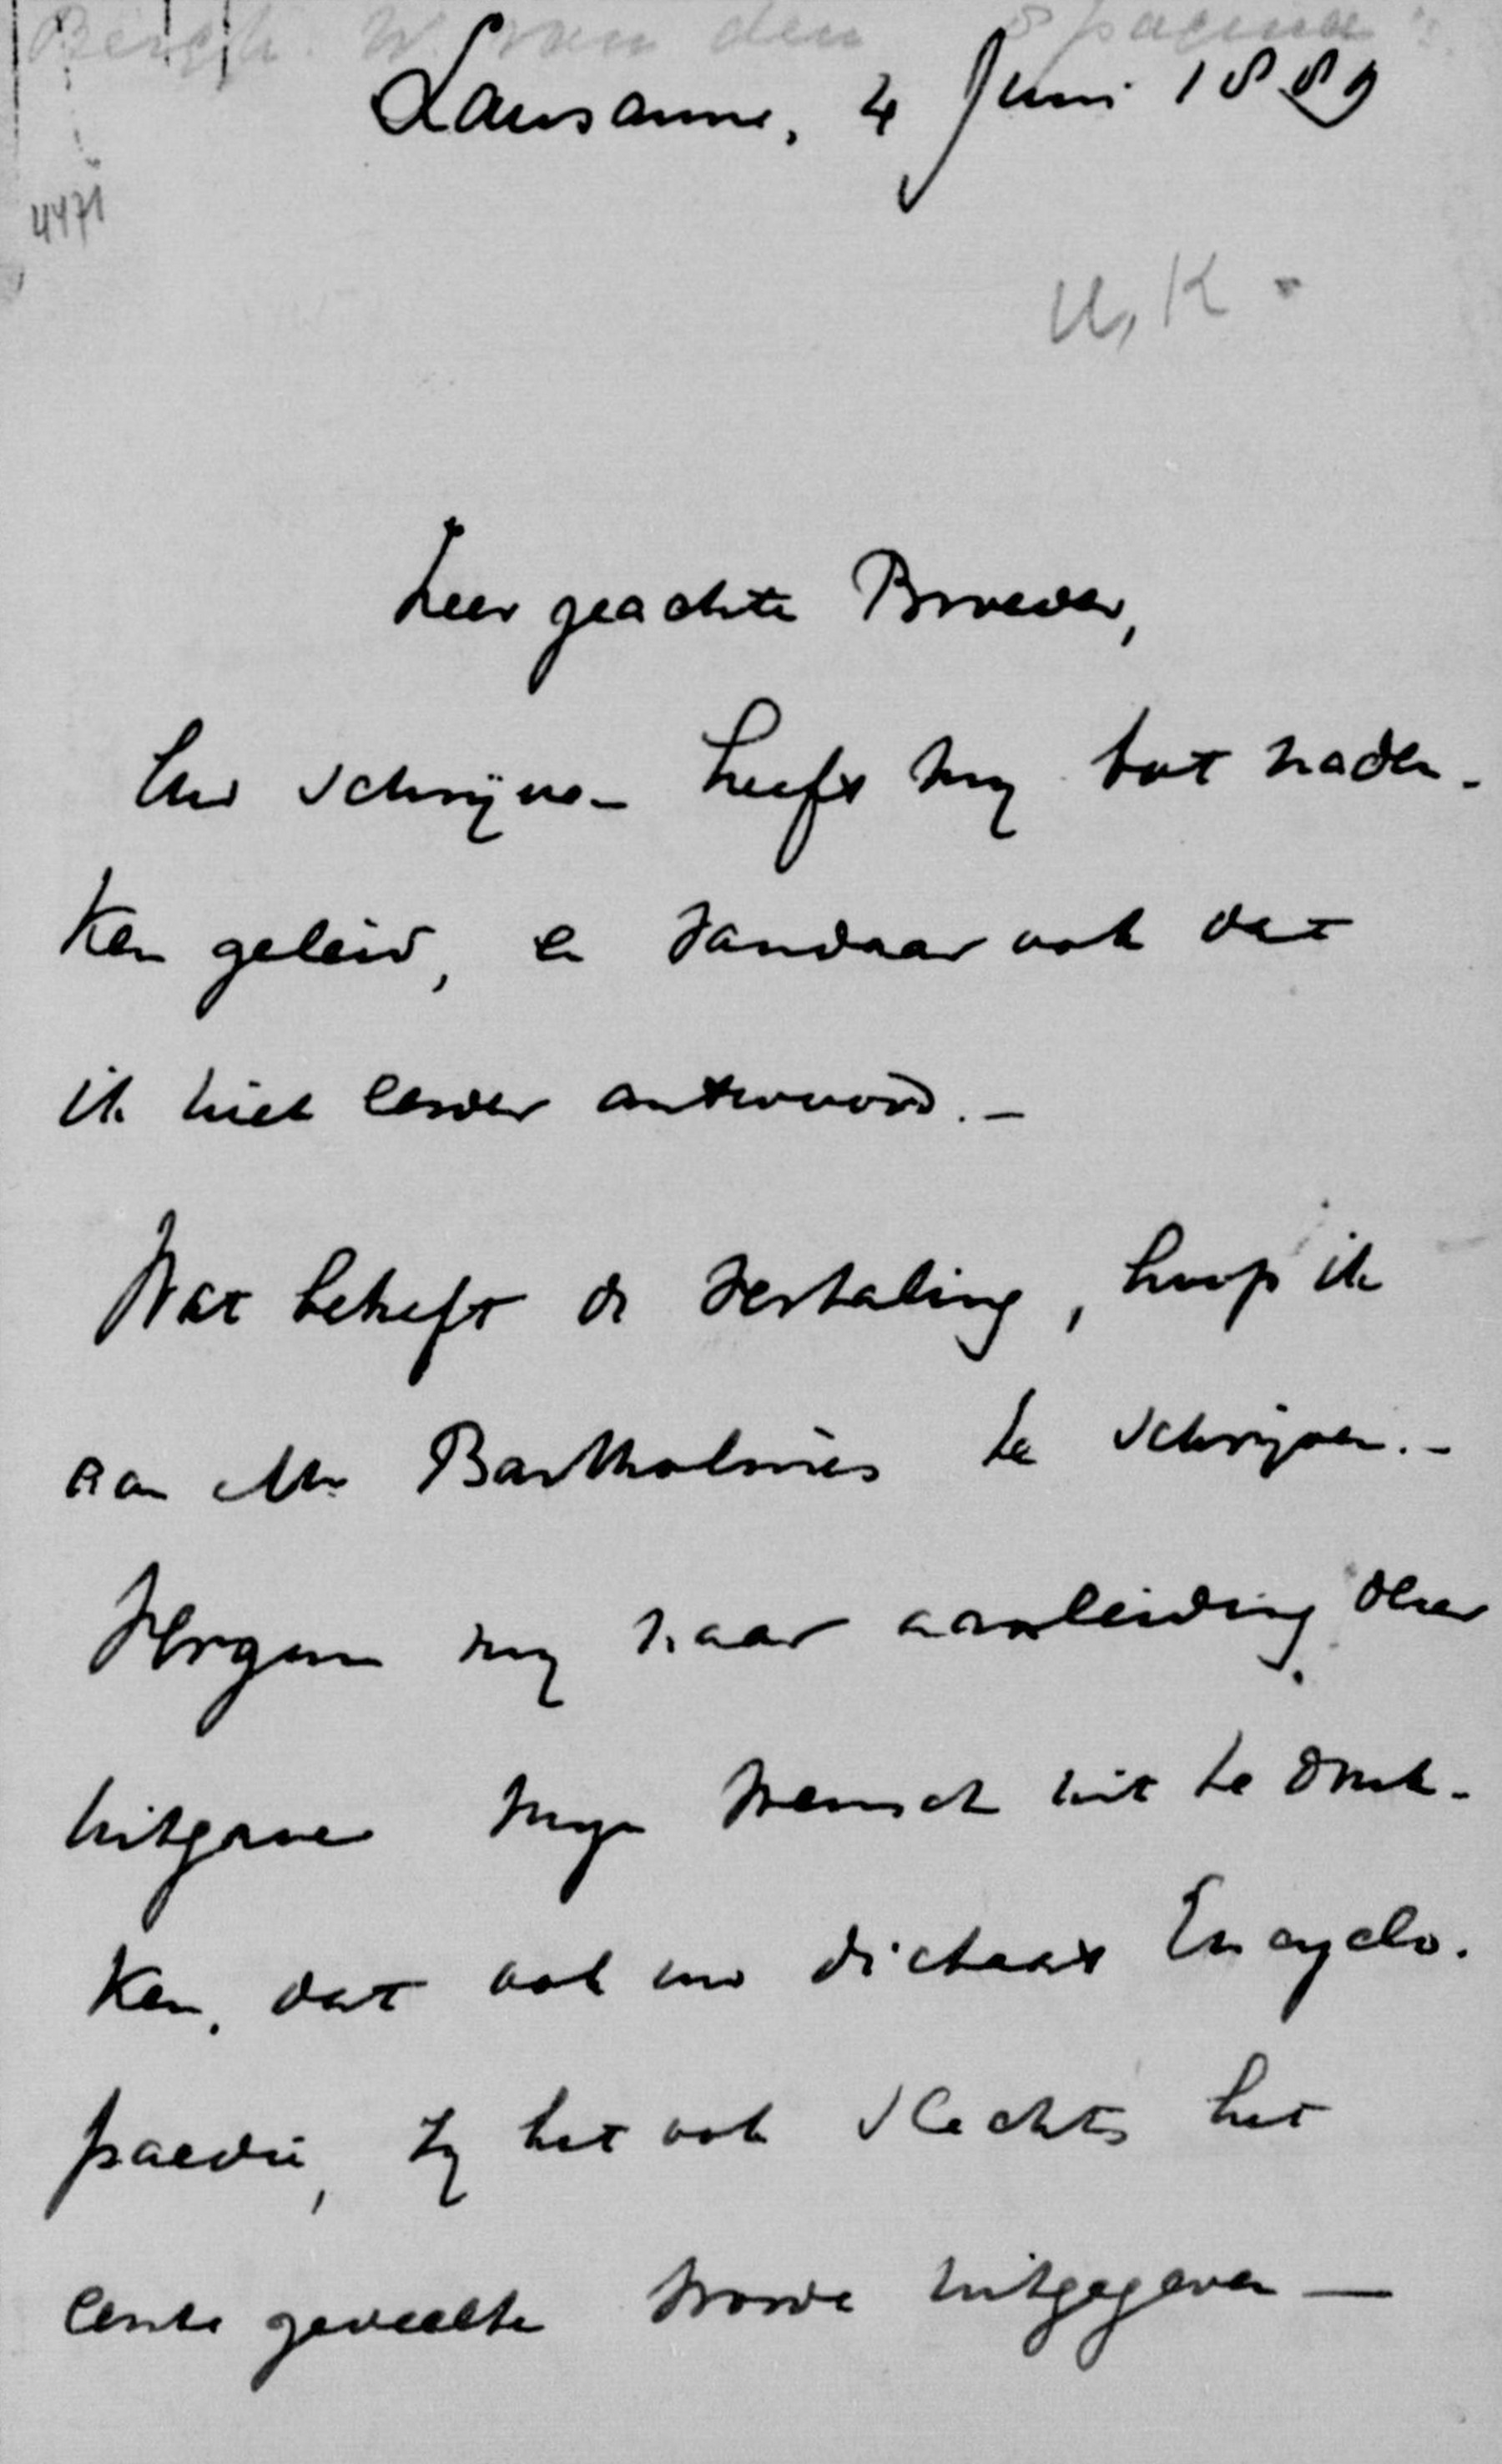 Bergh. W. van den 8 pagina's
Lausanne, 4 Juni 1889
4471
U, K.
Zeer geachte Broeder,
Uw schrijven heeft mij tot naden-
ken geleid, en vandaar ook dat
ik niet eerder antwoord. –
Wat betreft de vertaling, hoop ik
aan Mr Bartholmès te schrijven. –
Vergun mij naar aanleiding dezer
uitgave mijn wensch uit te druk-
ken, dat ook uw dictaat Encyclo-
paedie, zij het ook slechts het
eerste gedeelte worde uitgegeven —